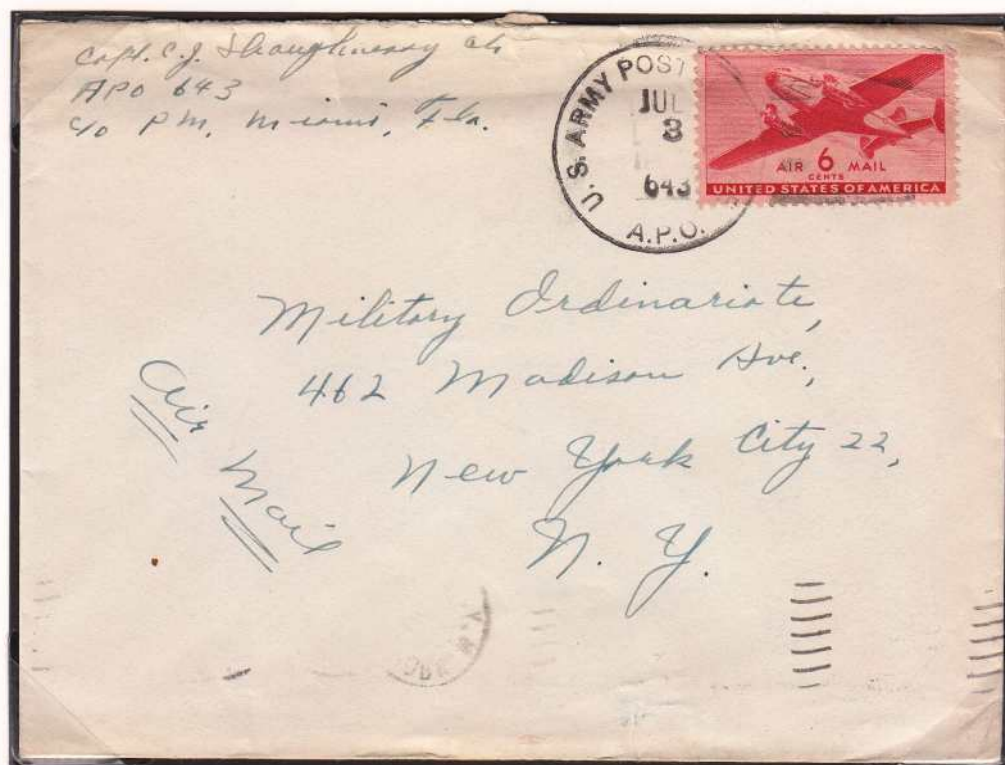 Capt. C.J. Shaughnessy Ch
APO 643
c/o P.M. Miami, Fla.
U.S. ARMY POST
JUL
3
643
A.P.O.
AIR 6 MAIL
CENTS
UNITED STATES OF AMERICA
Military Ordinariate,
462 Madison Ave.,
New York City 22,
N. Y.
Air Mail